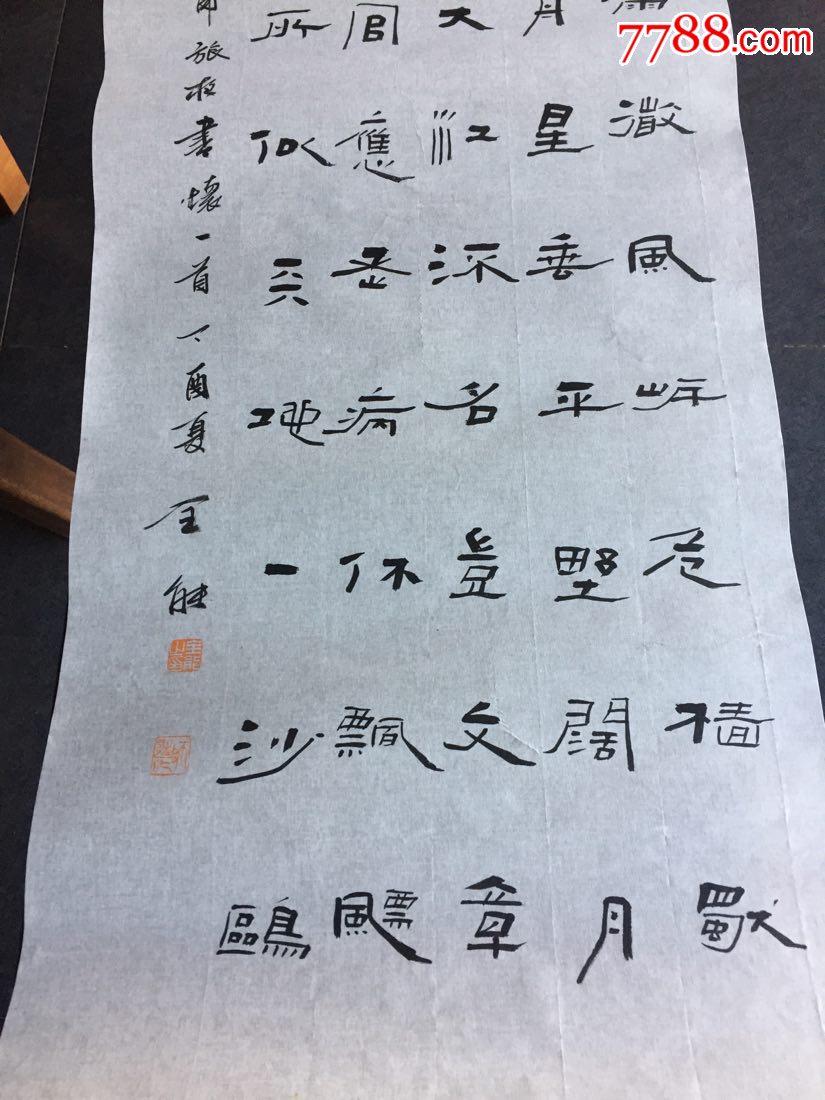 7788.com
微風岸危檣獨
舟星垂平野闊月
大江流名豈文章
官應老病休飄飄
所似天地一沙鷗
旅夜書懷一首丁酉夏
全能